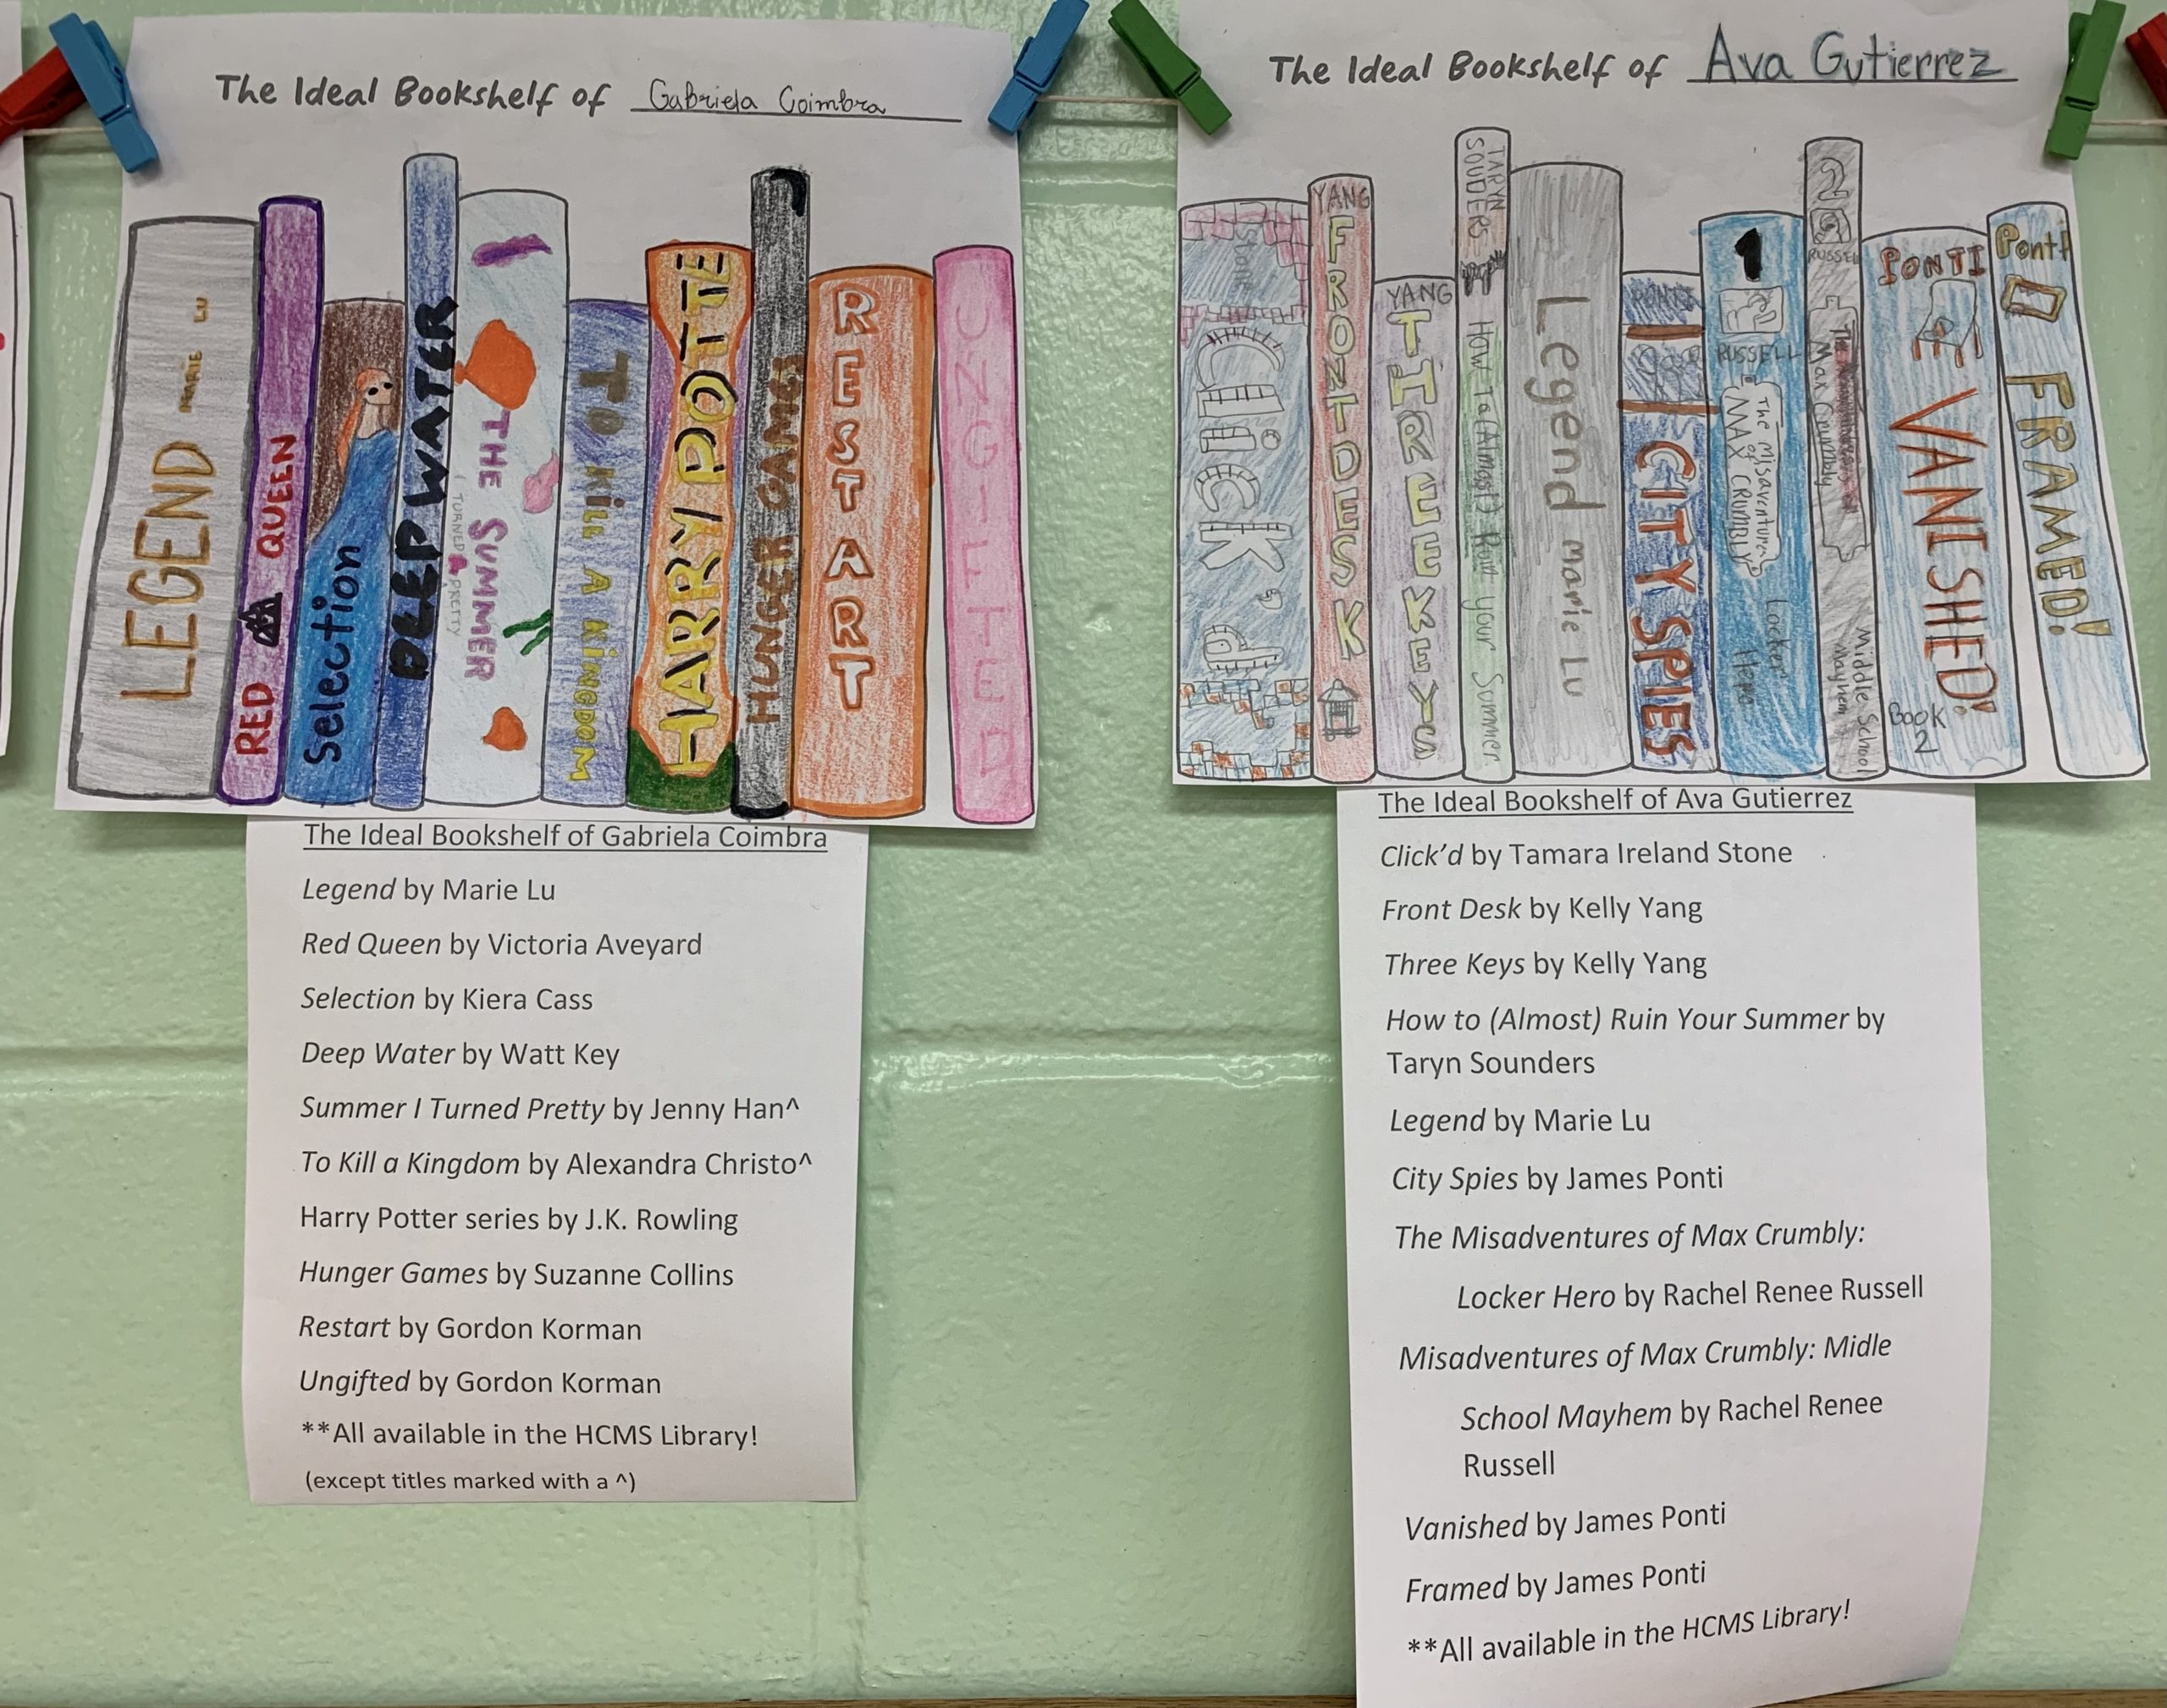 The Ideal Bookshelf of Gabriela Coimbra
LEGEND MARIE LU
RED QUEEN
Selection
DEEP WATER
THE SUMMER
I TURNED PRETTY
TO Kill A KINGDOM
HARRY POTTE
HUNGER GAMES
RESTART
UNGIFTED
The Ideal Bookshelf of Gabriela Coimbra
Legend by Marie Lu
Red Queen by Victoria Aveyard
Selection by Kiera Cass
Deep Water by Watt Key
Summer I Turned Pretty by Jenny Han^
To Kill a Kingdom by Alexandra Christo^
Harry Potter series by J.K. Rowling
Hunger Games by Suzanne Collins
Restart by Gordon Korman
Ungifted by Gordon Korman
**All available in the HCMS Library!
(except titles marked with a ^)
The Ideal Bookshelf of Ava Gutierrez
Stone
CLICK'D
YANG
FRONT DESK
YANG
THREE KEYS
TARYN
SOUDERS
How To (Almost) Ruin your Summer
Legend marie Lu
PONTI
CITY SPIES
1
RUSSELL
The misaventures
of
MAX CRUMBLY
Locker
Hero
2
RUSSELL
Max Crumbly
Middle School
Mayhem
PONTI
VANISHED!
BOOK
2
Ponti
FRAMED!
The Ideal Bookshelf of Ava Gutierrez
Click'd by Tamara Ireland Stone
Front Desk by Kelly Yang
Three Keys by Kelly Yang
How to (Almost) Ruin Your Summer by
Taryn Sounders
Legend by Marie Lu
City Spies by James Ponti
The Misadventures of Max Crumbly:
Locker Hero by Rachel Renee Russell
Misadventures of Max Crumbly: Midle
School Mayhem by Rachel Renee
Russell
Vanished by James Ponti
Framed by James Ponti
**All available in the HCMS Library!